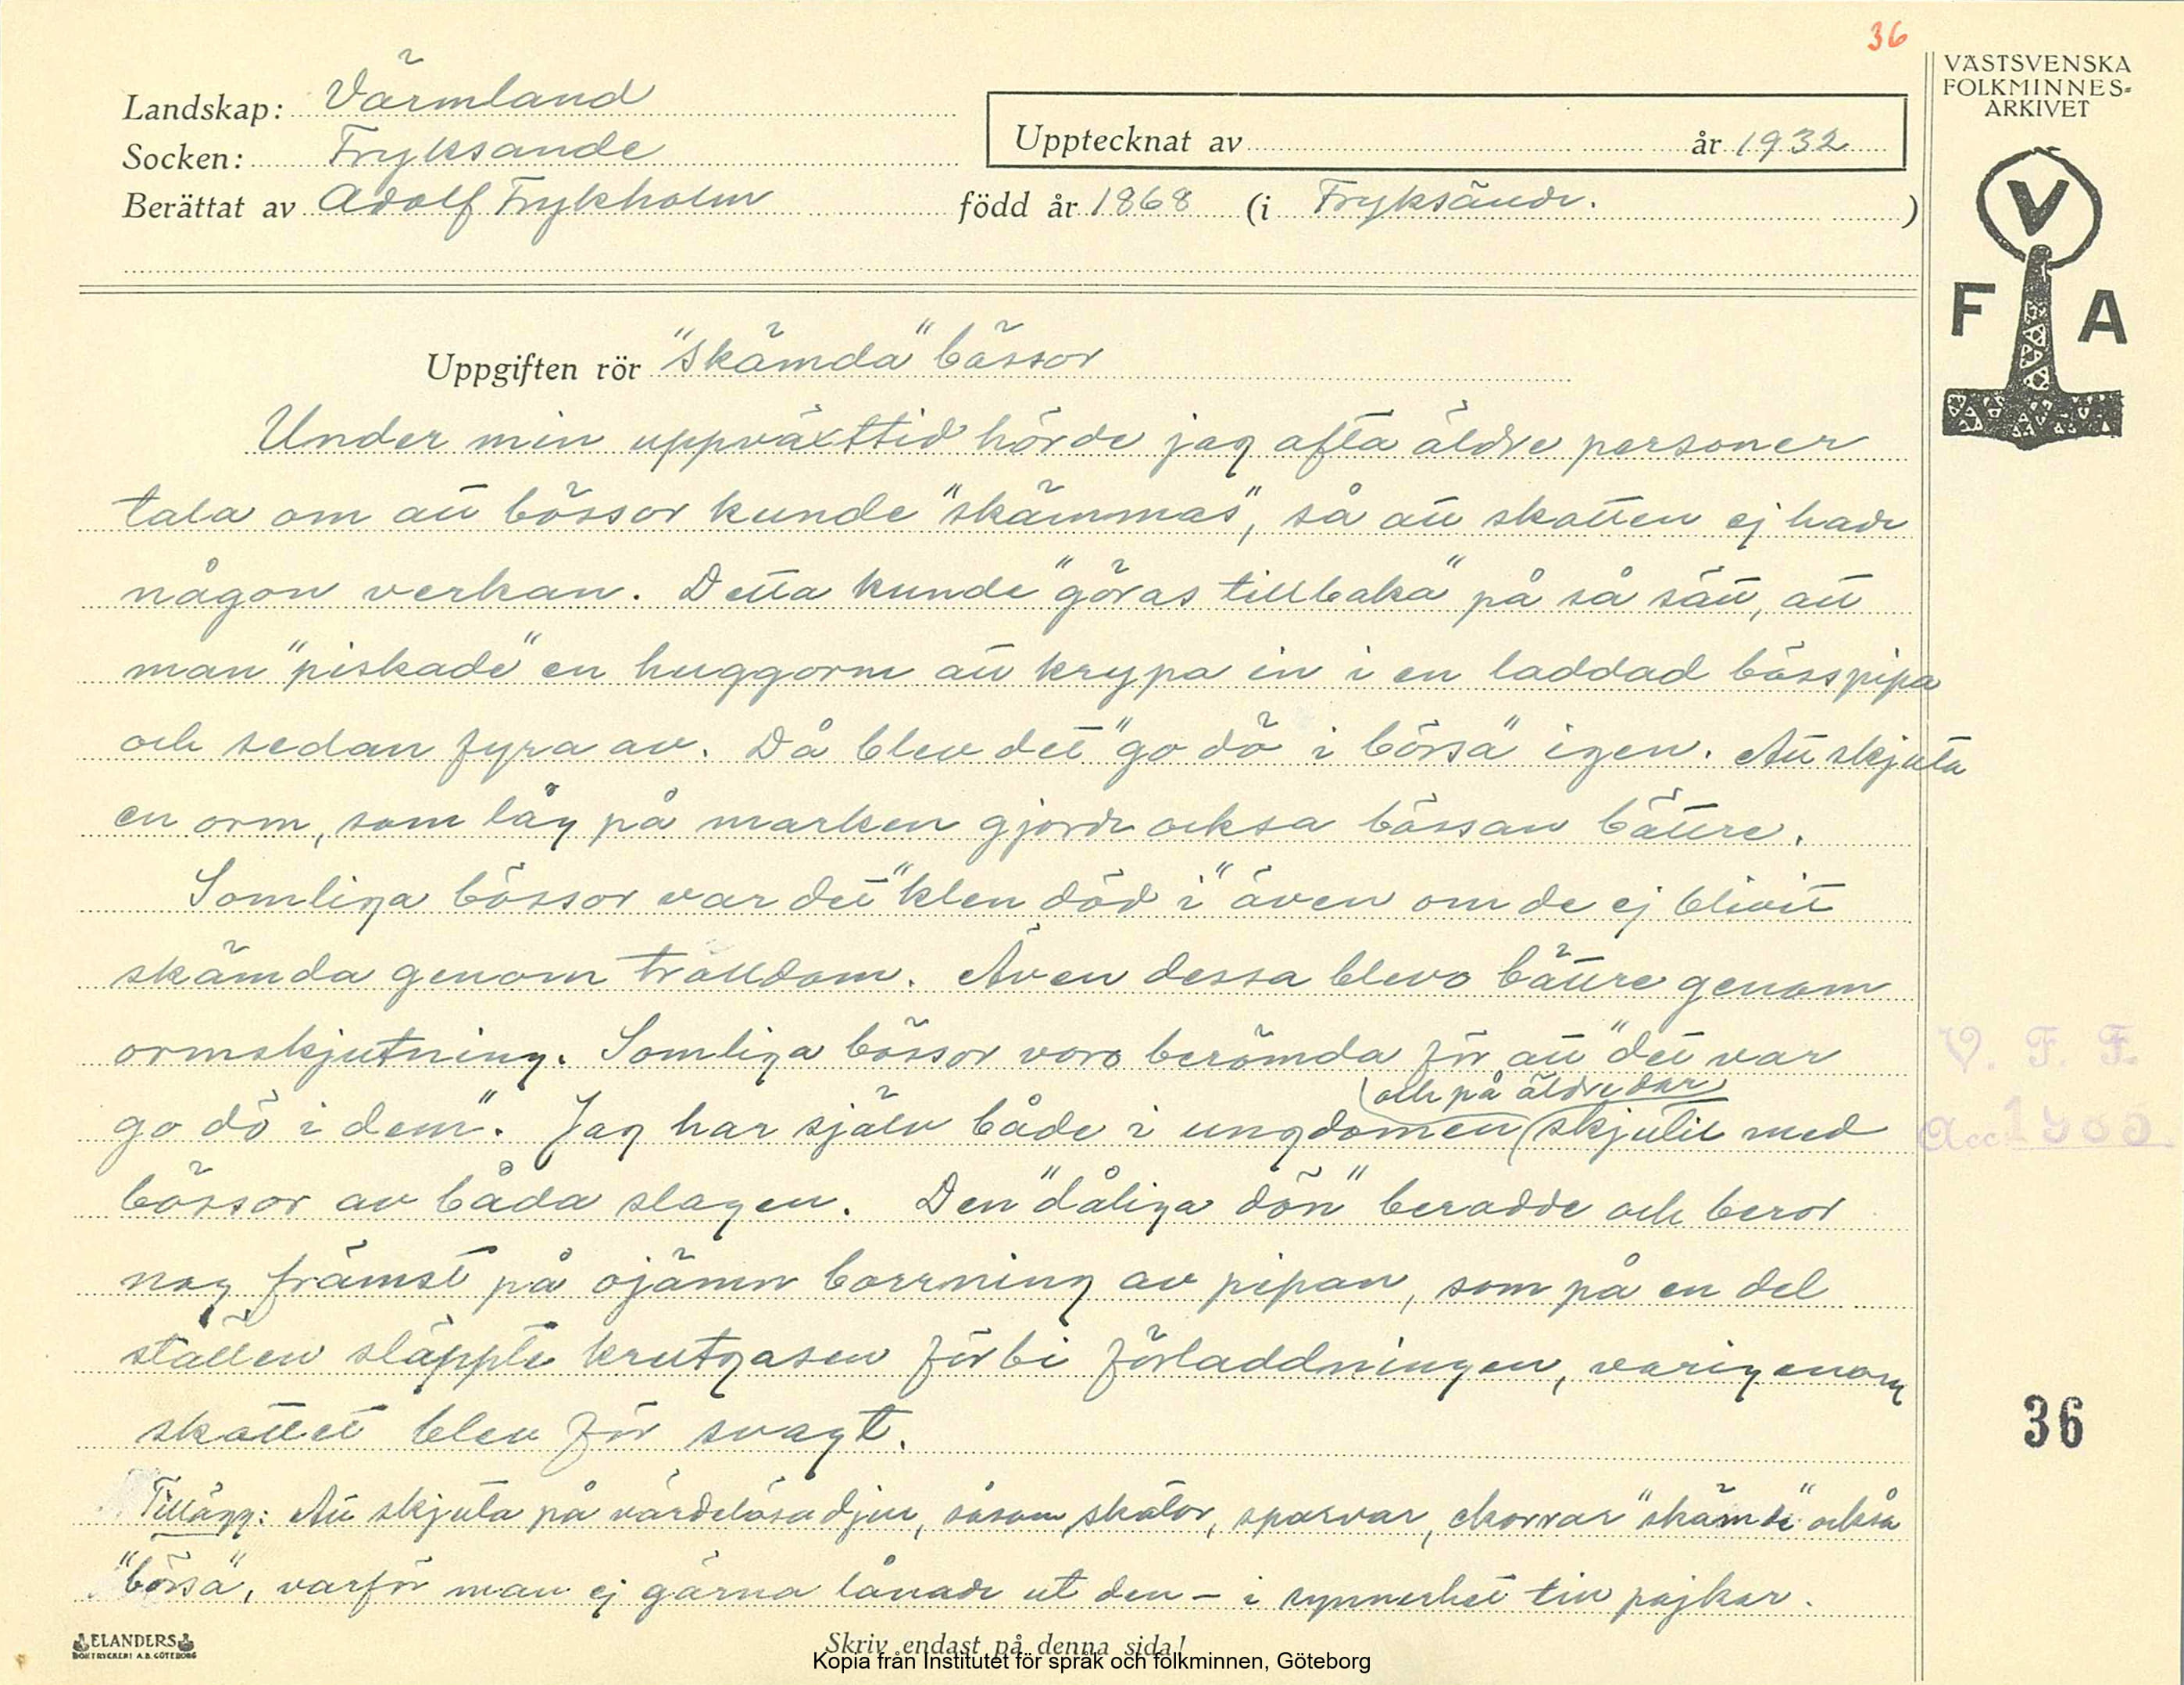 36
VÄSTSVENSKA
FOLKMINNES-
ARKIVET
Landskap: Värmland
Socken: Fryksände
Upptecknat av år 1932
Berättat av Adolf Frykholm född år 1868 (i Fryksände. )
V
F A
Uppgiften rör "Skämda" bössor
Under min uppväxttid hörde jag ofta äldre personer
tala om att bössor kunde "skämmas", så att skotten ej hade
någon verkan. Detta kunde "göras tillbaka" på så sätt, att
man "piskade" en huggorm att krypa in i en laddad bösspipa
och sedan fyra av. Då blev det "go dö i börsa" igen. Att skjuta
en orm, som låg på marken gjorde också bössan bättre.
Somliga bössor var det "klen död i" även om de ej blivit
skämda genom trolldom. Även dessa blevo bättre genom
ormskjutning. Somliga bössor voro berömda för att "det var
go dö i dem". Jag har själv både i ungdomen (och på äldre dar) skjutit med
bössor av båda slagen. Den "dåliga dön" berodde och beror
nog främst på ojämn borrning av pipan, som på en del
ställen släppte krutgasen förbi förladdningen, varigenom
skottet blev för svagt.
Tillägg: Att skjuta på värdelösa djur, såsom skator, sparvar, ekorrar "skämde" också
"börsa", varför man ej gärna lånade ut den - i synnerhet tin pojkar.
V. F. F.
Acc
36
ELANDERS
BOKTRYCKERI A.B. GÖTEBORG
Skriv endast på denna sida!
Kopia från Institutet för språk och folkminnen, Göteborg